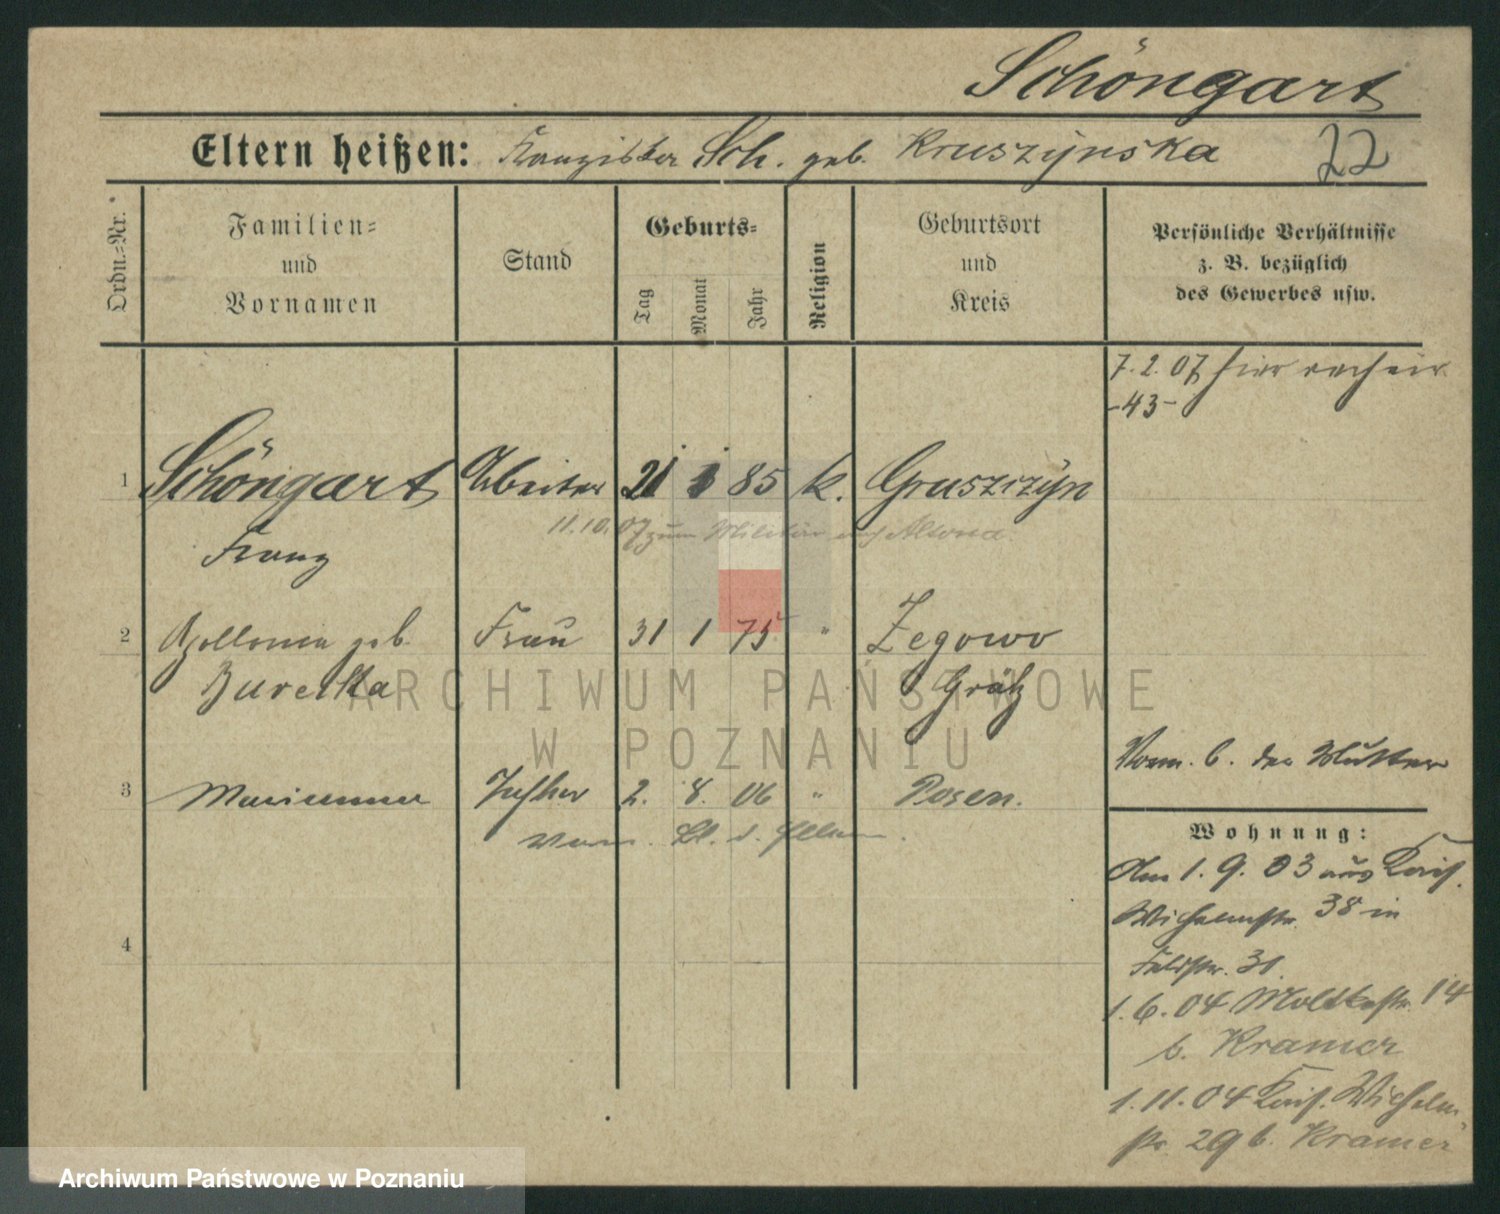 Schöngart
Eltern heißen: Franziska Sch. geb. Kruszynska 22
Ordn.=Nr.
Familien=
und
Vornamen
Stand
Geburts=
Tag
Monat
Jahr
Religion
Geburtsort
und
Kreis
Persönliche Verhältnisse
z. B. bezüglich
des Gewerbes usw.
7. 2. 07 hier
-43-
1 Schöngart Arbeiter 21 1 85 k. Gruszczyn
11.10.07 zum Militär nach Altona.
Franz
2 Apollonia geb. Frau 31 1 75 " Zegowo
Zurecka Grätz
ARCHIWUM PAŃSTWOWE
W POZNANIU
Vorm. b. der Mutter
3 Marianna Tochter 2. 8. 06 " Posen.
Vorm.
Wohnung:
Am 1. 9. 03 aus Kais.
Wilhelmstr. 38 in
Feldstr. 31.
4
1. 6. 04 Moltkestr. 14
b. Kramer
1. 11. 04 Kais. Wilhelm
str. 29 b. Kramer
Archiwum Państwowe w Poznaniu